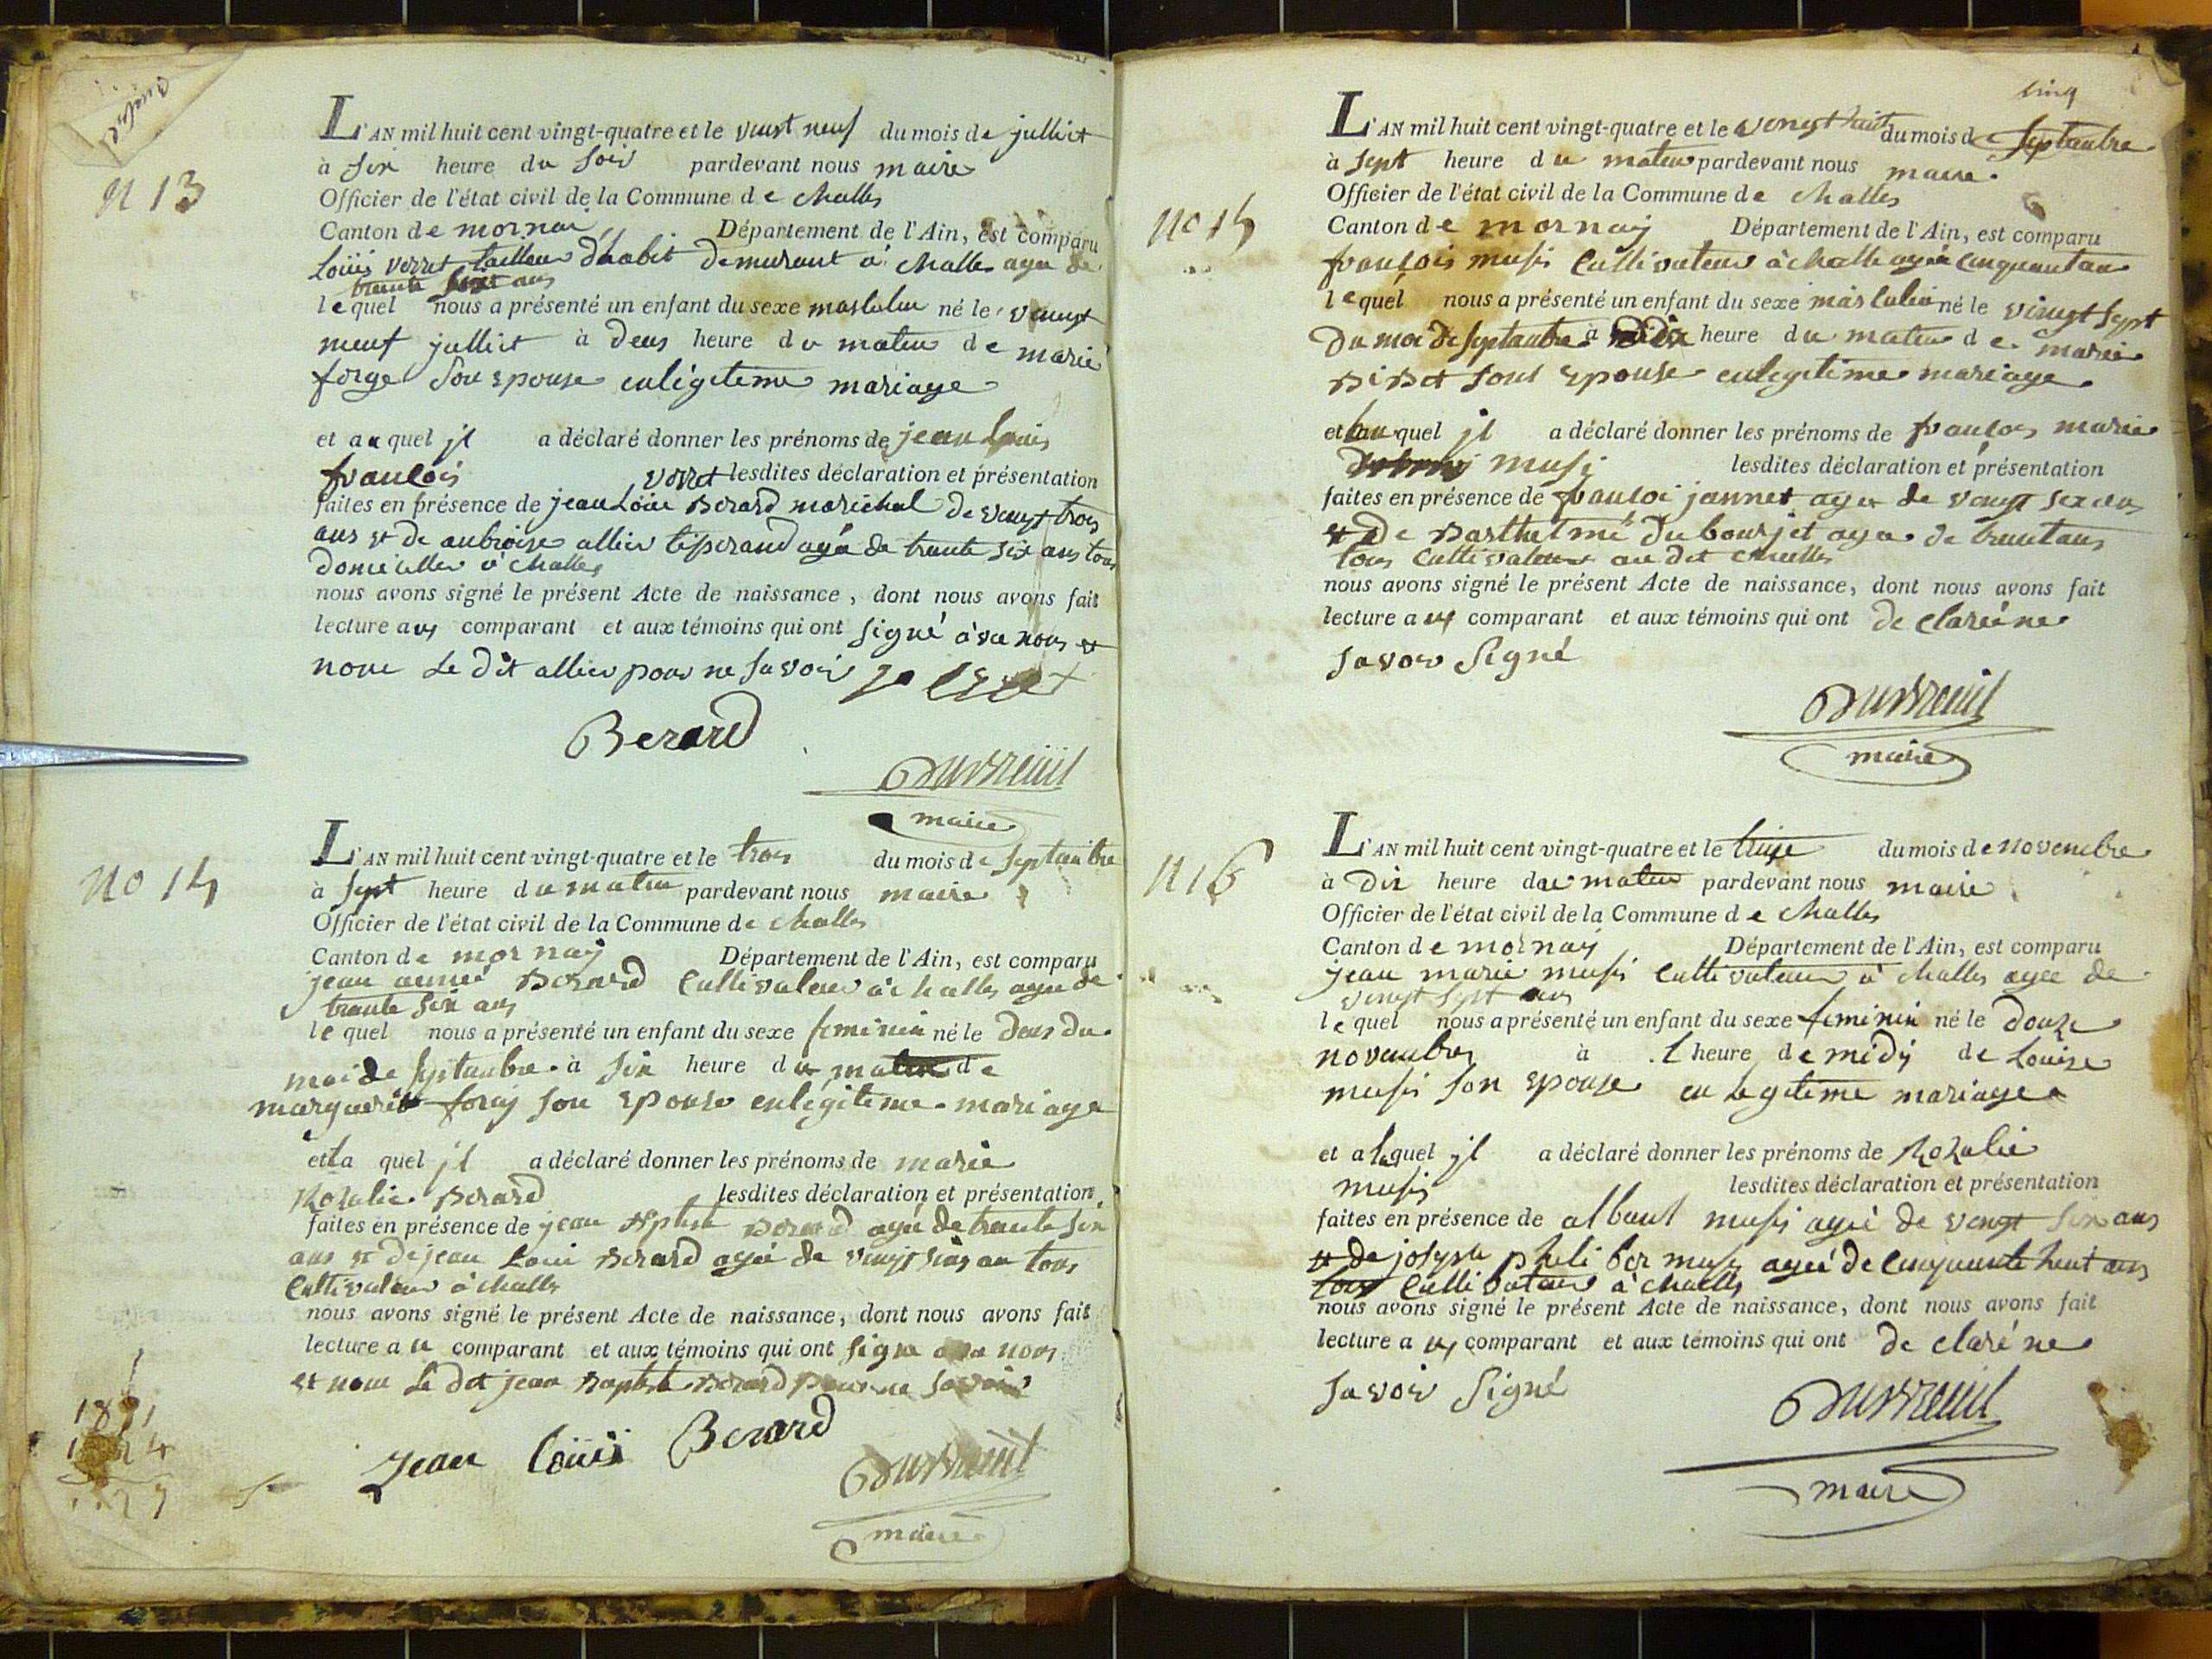 N 13
L'AN mil huit cent vingt-quatre et le vingt neuf du mois de julliet
à six heure du soir pardevant nous maire
Officier de l'état civil de la Commune de challes
Canton de mornai Département de l'Ain, est comparu
Louis verret tailleur d'habit demurant à challes agee de
trante sept ans
lequel nous a présenté un enfant du sexe masculin né le vingt
neuf julliet à deus heure du matin de marie
forge son epouse enlégitime mariage
et auquel jl a déclaré donner les prénoms de jean Louis
francois verret lesdites déclaration et présentation
faites en présence de jean Louis Berard marichal de vingt trois
ans et de anbroise allier tiserand agée de trante six ans tous
domicillier à challes
nous avons signé le présent Acte de naissance, dont nous avons fait
lecture aus comparant et aux témoins qui ont signé àve nous et
nom Le dit allier pour ne savoir
Berard
Dubreuil
maire
No 14
L'AN mil huit cent vingt-quatre et le trois du mois de septanbre
à sept heure du matin pardevant nous maire
Officier de l'état civil de la Commune de challes
Canton de mornay Département de l'Ain, est comparu
jean aimé Berard cultivateur à challes agee de
trante six ans
lequel nous a présenté un enfant du sexe feminin né le deus du
moi de septanbre à six heure du matin de
marguerite foray son epouse enlégitime mariage
et la quel jl a déclaré donner les prénoms de marie
Rozalie Berard lesdites déclaration et présentation
faites en présence de jean Bptiste Berard agée de trante six
ans et de jean Loui Berard agée de vingt sinq an tous
cultivateur à challes
nous avons signé le présent Acte de naissance, dont nous avons fait
lecture au comparant et aux témoins qui ont signe ava nous
et nom Le dit jean Baptiste Berard pour ne savoir
Jean Louis Berard
Dubreuil
maire
cinq
No 15
L'AN mil huit cent vingt-quatre et le vingt huit du mois de septanbre
à sept heure du matin pardevant nous maire
Officier de l'état civil de la Commune de challes
Canton de mornay Département de l'Ain, est comparu
françois musi cultivateur à challe agée cinquantan
lequel nous a présenté un enfant du sexe masculin né le vingt sept
du moi de septanbre à dix heure du matin de marie
Didet sont epouse enlegitime mariage
et auquel jl a déclaré donner les prénoms de francois marie
musy lesdites déclaration et présentation
faites en présence de francoi jannet agee de vingt six ans
et de Barthelmé dubourjet agee de trantans
tous cultivateur au dit challes
nous avons signé le présent Acte de naissance, dont nous avons fait
lecture aus comparant et aux témoins qui ont de claréne
savoir signé
Dubreuil
maire
N 16
L'AN mil huit cent vingt-quatre et le treize du mois de novenbre
à dix heure du matin pardevant nous maire
Officier de l'état civil de la Commune de challes
Canton de mornay Département de l'Ain, est comparu
jean marie musi cultivateur à challes agee de
vingt sept ans
lequel nous a présenté un enfant du sexe feminin né le douze
novanbre à l heure de midy de Louise
musi son epouse en legitime mariage
et a laquel jl a déclaré donner les prénoms de Rozalie
musi lesdites déclaration et présentation
faites en présence de albant musi agée de vingt six ans
et de josepe phili ber musy agée de cinquante huit ans
tous cultivateur à challes
nous avons signé le présent Acte de naissance, dont nous avons fait
lecture aus comparant et aux témoins qui ont de claréne
savoir signé
Dubreuil
maire